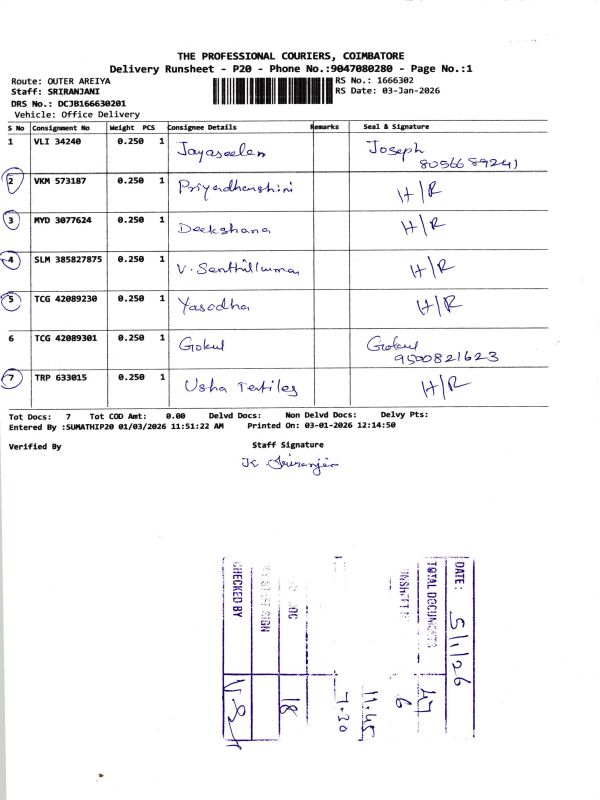 THE PROFESSIONAL COURIERS, COIMBATORE
Delivery Runsheet - P20 - Phone No.:9047080280 - Page No.:1
Route: OUTER AREIYA
RS No.: 1666302
Staff: SRIRANJANI
RS Date: 03-Jan-2026
DRS No.: DCJB166630201
Vehicle: Office Delivery
S No Consignment No Weight PCS Consignee Details Remarks Seal & Signature
1 VLI 34240 0.250 1 Jayaseelan Joseph 8056689241
2 VKM 573187 0.250 1 Priyadharshini H/R
3 MYD 3077624 0.250 1 Deekshana H/R
4 SLM 385827875 0.250 1 V. Senthilkumar H/R
5 TCG 42089230 0.250 1 Yasodha H/R
6 TCG 42089301 0.250 1 Gokul Gokul 9500821623
7 TRP 633015 0.250 1 Usha Textiles H/R
Tot Docs: 7 Tot COD Amt: 0.00 Delvd Docs: Non Delvd Docs: Delvy Pts:
Entered By :SUMATHIP20 01/03/2026 11:51:22 AM Printed On: 03-01-2026 12:14:50
Verified By
Staff Signature
DATE: 5/1/26
TOTAL DOCUMENTS 47
6
11.45
7.30
18
CHECKED BY